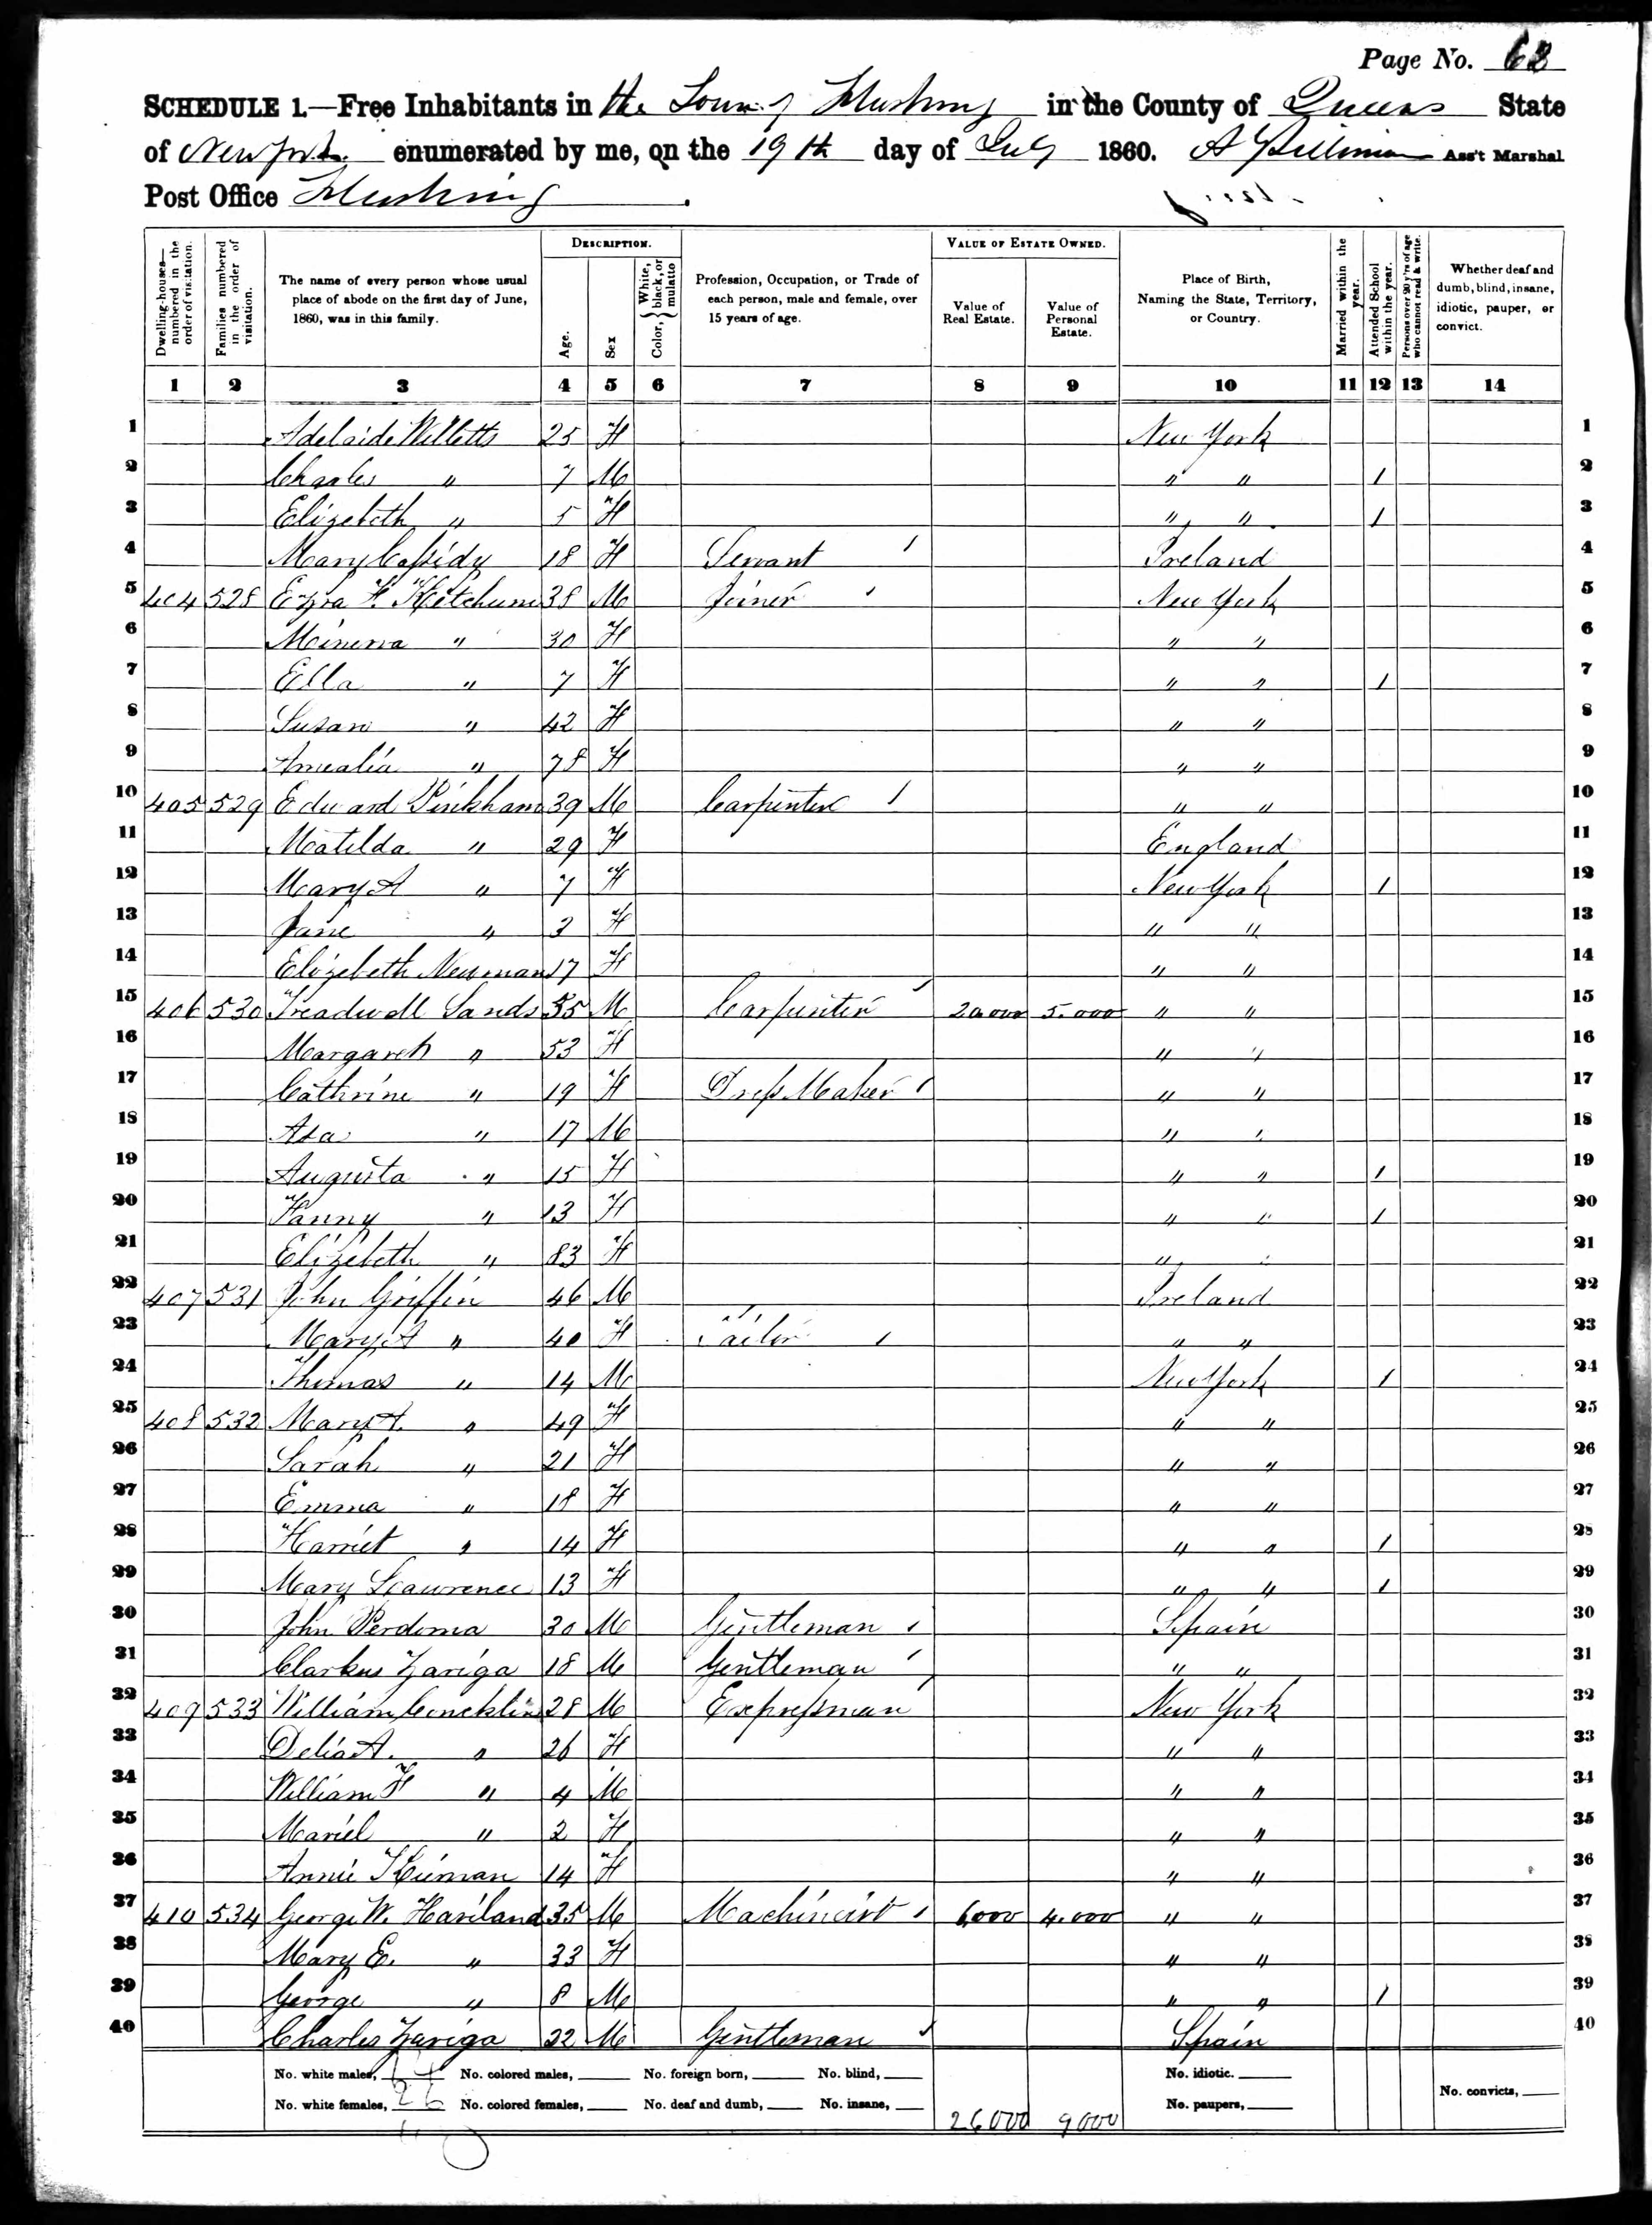 Page No. 62
SCHEDULE 1.—Free Inhabitants in the Town of Flushing in the County of Queens State
of New York enumerated by me, on the 19th day of July 1860. Ass't Marshal
Post Office Flushing
Dwelling-houses—numbered in the order of visitation.
Families numbered in the order of visitation.
The name of every person whose usual place of abode on the first day of June, 1860, was in this family.
DESCRIPTION.
Age.
Sex
Color, White, black, or mulatto
Profession, Occupation, or Trade of each person, male and female, over 15 years of age.
VALUE OF ESTATE OWNED.
Value of Real Estate.
Value of Personal Estate.
Place of Birth, Naming the State, Territory, or Country.
Married within the year.
Attended School within the year.
Persons over 20 y'rs of age who cannot read & write.
Whether deaf and dumb, blind, insane, idiotic, pauper, or convict.
1 2 3 4 5 6 7 8 9 10 11 12 13 14
1 Adelaide Willetts 25 F New York 1
2 Charles " 7 M " " / 2
3 Elizebeth " 5 F " " / 3
4 Mary Cassidy 18 F Servant / Ireland 4
5 404 528 Ezra F. Ketchum 38 M Joiner / New York 5
6 Minerva " 30 F " " 6
7 Ella " 7 F " " / 7
8 Susan " 42 F " " 8
9 Amealia " 78 F " " 9
10 405 529 Edward Pinkham 39 M Carpenter / " " 10
11 Matilda " 29 F England 11
12 Mary A " 7 F New York / 12
13 Jane " 3 F " " 13
14 Elizebeth Newman 17 F " " 14
15 406 530 Treadwell Sands 55 M Carpinter / 20,000 5,000 " " 15
16 Margaret " 53 F " " 16
17 Cathrine " 19 F Dress Maker / " " 17
18 Asa " 17 M " " 18
19 Augusta " 15 F " " / 19
20 Fanny " 13 F " " / 20
21 Elizebeth " 83 F " " 21
22 407 531 John Griffin 46 M Ireland 22
23 Mary A " 40 F Tailor / " " 23
24 Thomas " 14 M New York / 24
25 408 532 Mary A. " 49 F " " 25
26 Sarah " 21 F " " 26
27 Emma " 18 F " " 27
28 Harriet " 14 F " " / 28
29 Mary Lawrence 13 F " " / 29
30 John Perdoma 30 M Gentleman / Spain 30
31 Clarkus Zariga 18 M Gentleman / " " 31
32 409 533 William Concklin 28 M Expressman New York 32
33 Delia A. " 26 F " " 33
34 William F " 4 M " " 34
35 Mariel " 2 F " " 35
36 Annie 14 F " " 36
37 410 534 George W. Haviland 35 M Machinist / 6,000 4,000 " " 37
38 Mary E. " 33 F " " 38
39 George " 8 M " " / 39
40 Charles Zariga 22 M Gentleman / Spain 40
No. white males, 14 No. colored males, No. foreign born, No. blind, No. idiotic.
No. white females, 26 No. colored females, No. deaf and dumb, No. insane, 26000 9000 No. paupers, No. convicts,
40